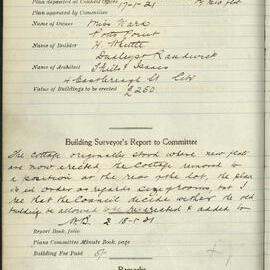 Plan deposited at Council Office 17-1-21
Plan approved by
Committee
Name of Owner Miss Ward
Potts Point
Name of Builder H. Whittle
Dudley St Randwick
Name of Architect & Isaacs
4 Castlereagh St City
Value of Buildings to be erected £250
Building Surveyor's Report to Committee
The cottage originally stood where new flats
are now erected. The Cottage removed to
a position at the rear of the lot, the plan
is in order as regards but I
see that the Council decide whether the old
building be allowed to be recreated & added to
W.B. 2 18-1-21
Report Book, folio
Plans Committee Minute Book, page
Building Fee Paid 5/-
Remarks